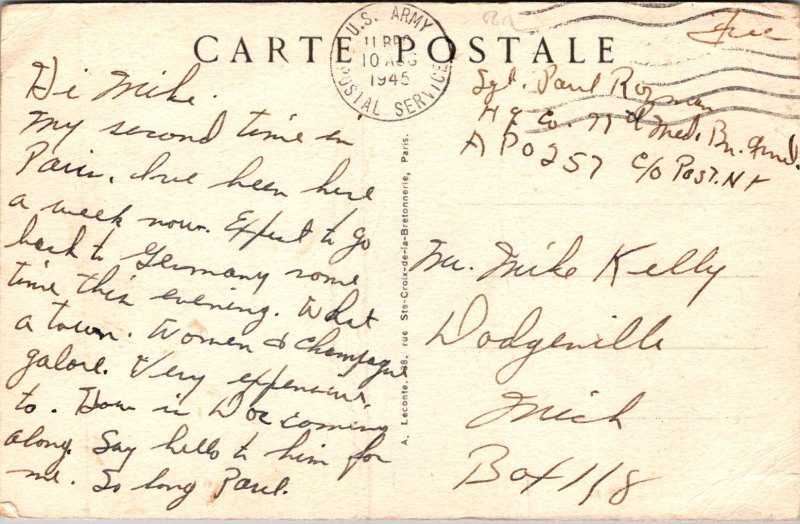 CARTE POSTALE
U.S. ARMY
10 AUG
1945
POSTAL SERVICE
Free
Hi Mike.
My second time in
Paris. I've been here
a week now. Expect to go
back to Germany some
time this evening. What
a town. Women & Champagne
galore. Very expensive,
to. How is Doc coming
along. Say hello to him for
me. So long Paul.
A. Leconte, 38, rue Ste-Croix-de-la-Bretonnerie, Paris.
Sgt. Paul Rozman
Hq Co. 77th Med. Bn.
APO 257 c/o Post. N Y
Mr. Mike Kelly
Dodgeville
Mich
Box 118